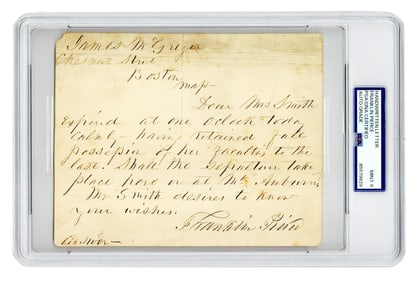 James McGregor
Chesnut Street
Boston
Mass-
Dear Mrs Smith
Expired at one Oclock today
Calmly - having retained full
possession of her faculties to the
last. Shall the Sepulture take
place here or at Mt Auburn
Mr Smith desires to know
your wishes.
Franklin Pierce
Answer-
HANDWRITTEN LETTER
FRANKLIN PIERCE
PSA/DNA CERTIFIED
AUTO GRADE
MINT 9